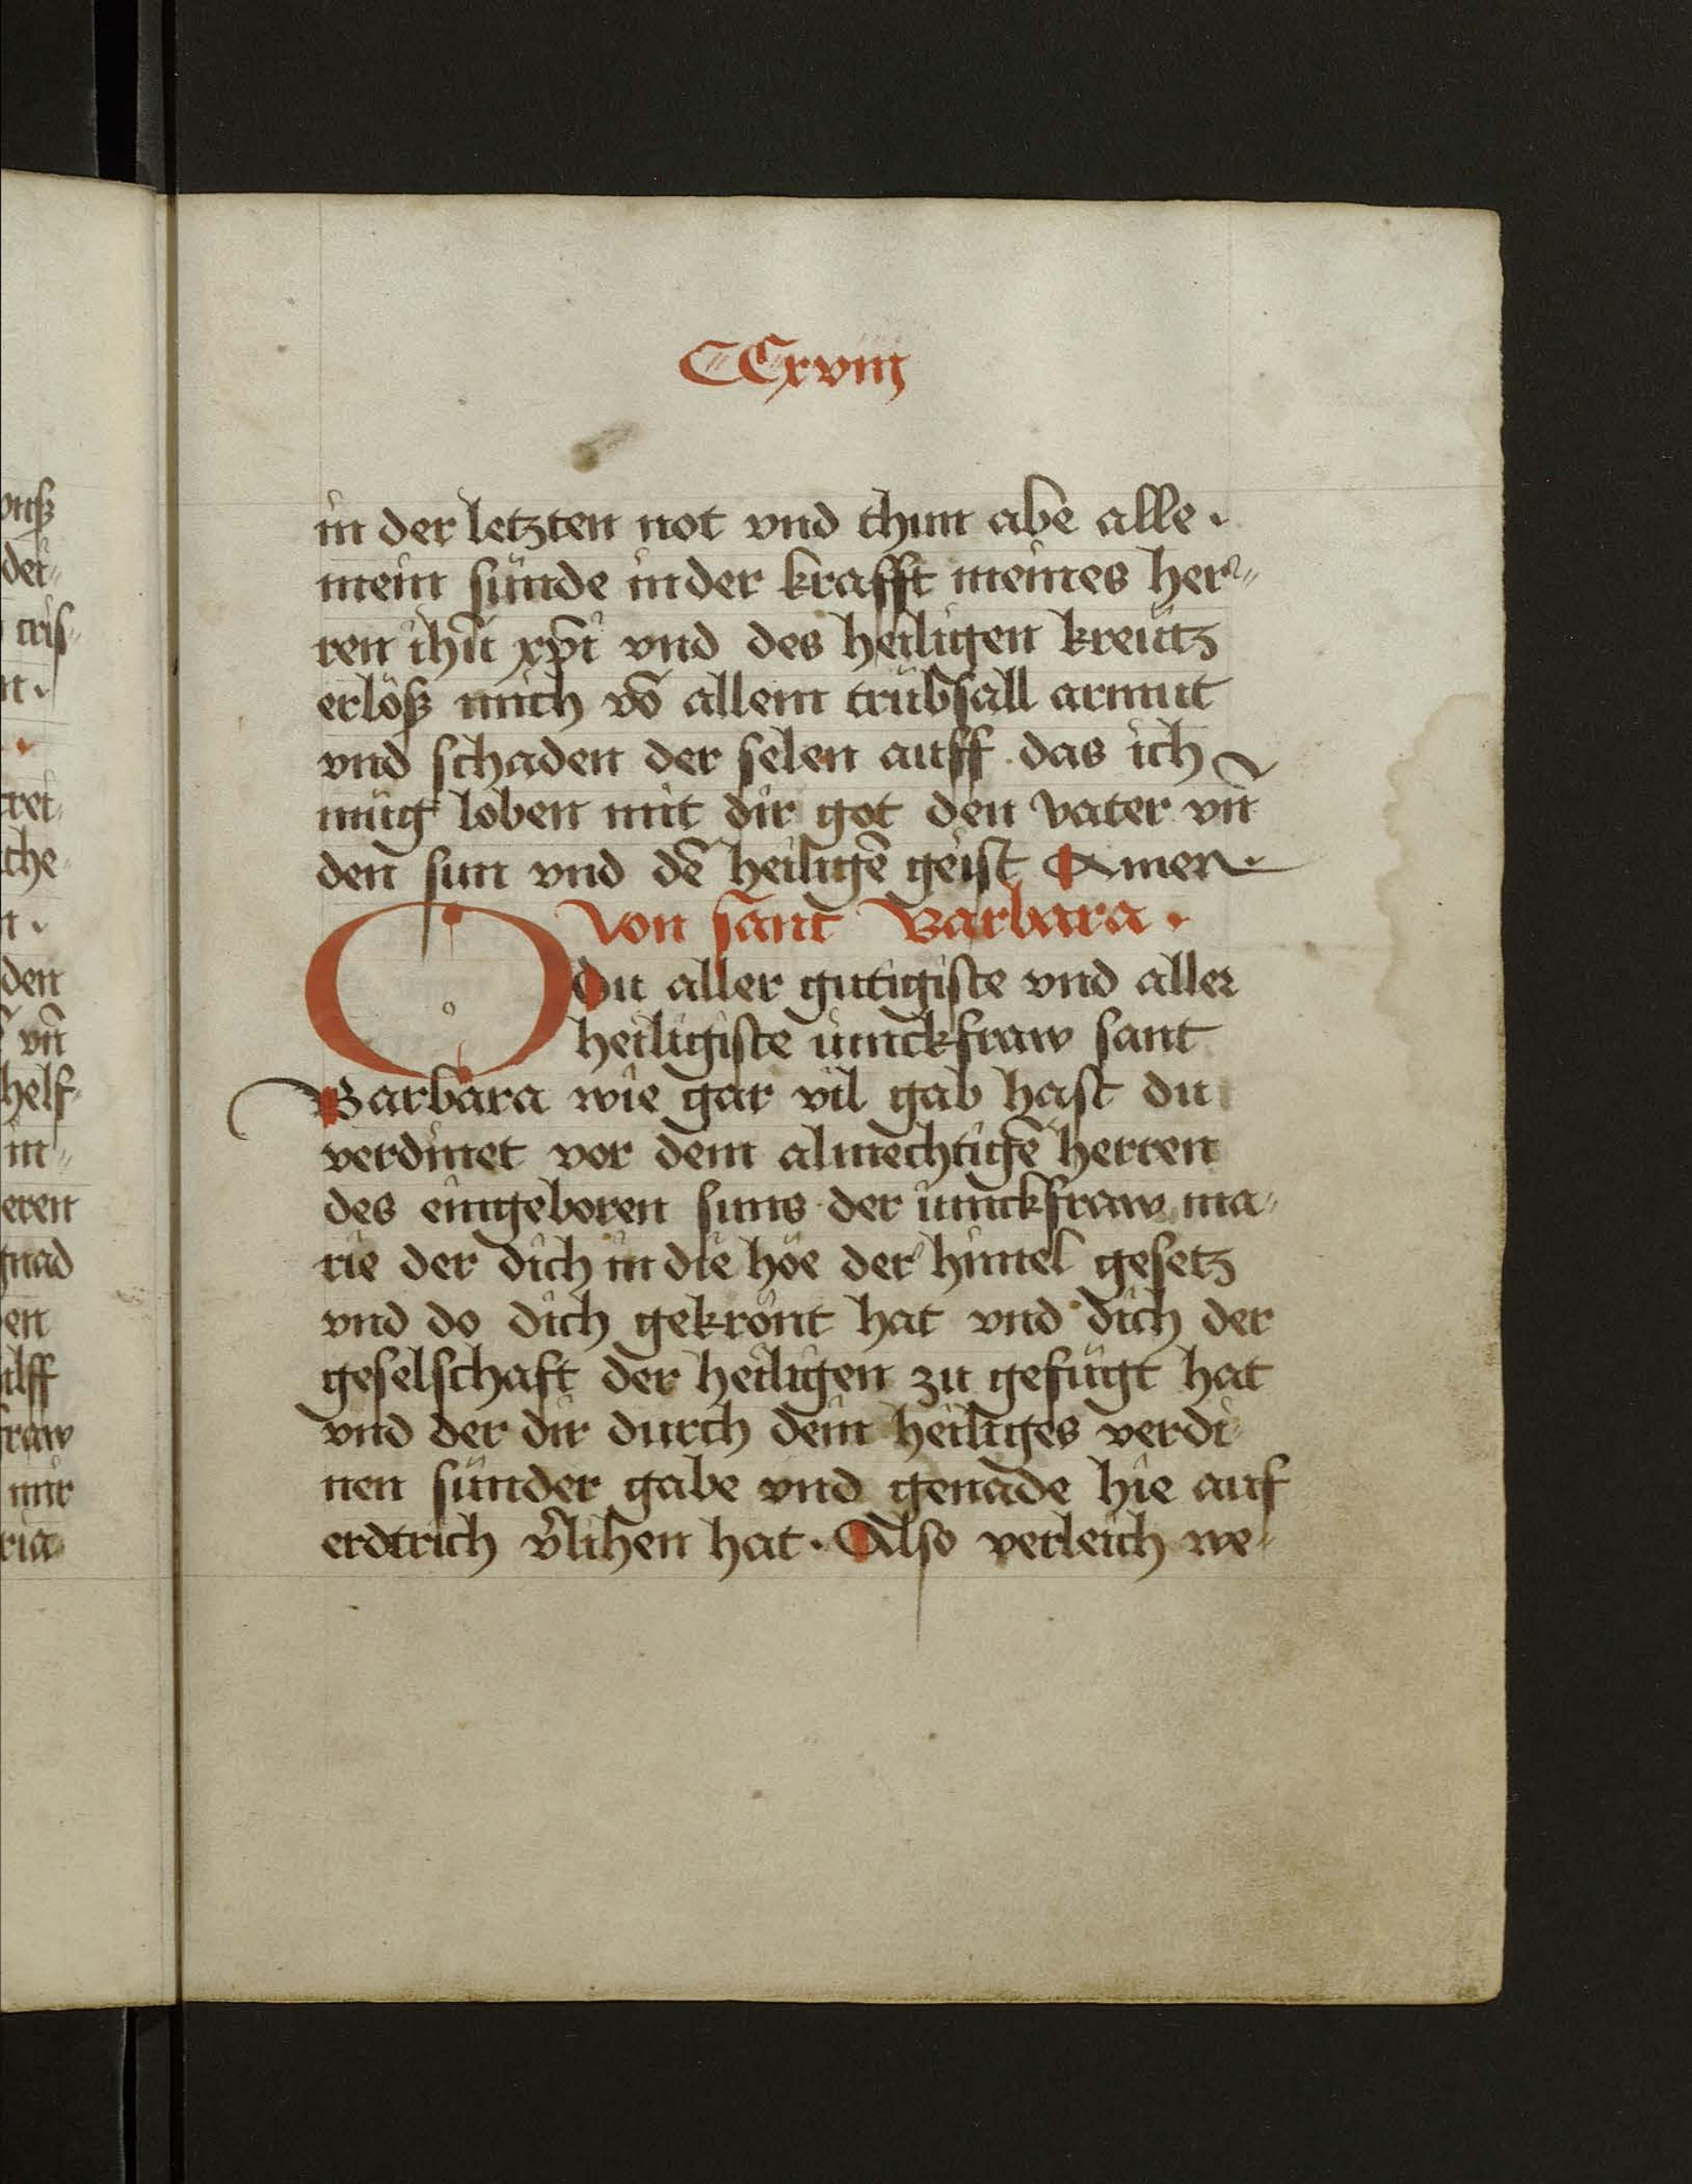 CCxviij
in der letzten not vnd thun abe alle.
mein sünde in der krafft meines her⸗
ren ihū xp̄i vnd des heiligen kreütz
erlöß mich vō allem trübsall armut
vnd schaden der selen auff das ich
müg loben mit dir got den vater vn̄
den sun vnd dē heiligē geist Amen.
Von sant Barbara.
O du aller gutigiste vnd aller
heiligiste iunckfraw sant
Barbara wie gar vil gab hast du
verdinet vor dem almechtigē herren
des eingeboren suns der iunckfraw ma⸗
rie der dich in die höe der himel gesetz
vnd do dich gekrönt hat vnd dich der
geselschaft der heiligen zu gefügt hat
vnd der dir durch dein heiliges verdi⸗
nen sünder gabe vnd genade hie auf
erdtrich v̄lihen hat. Also verleich we⸗